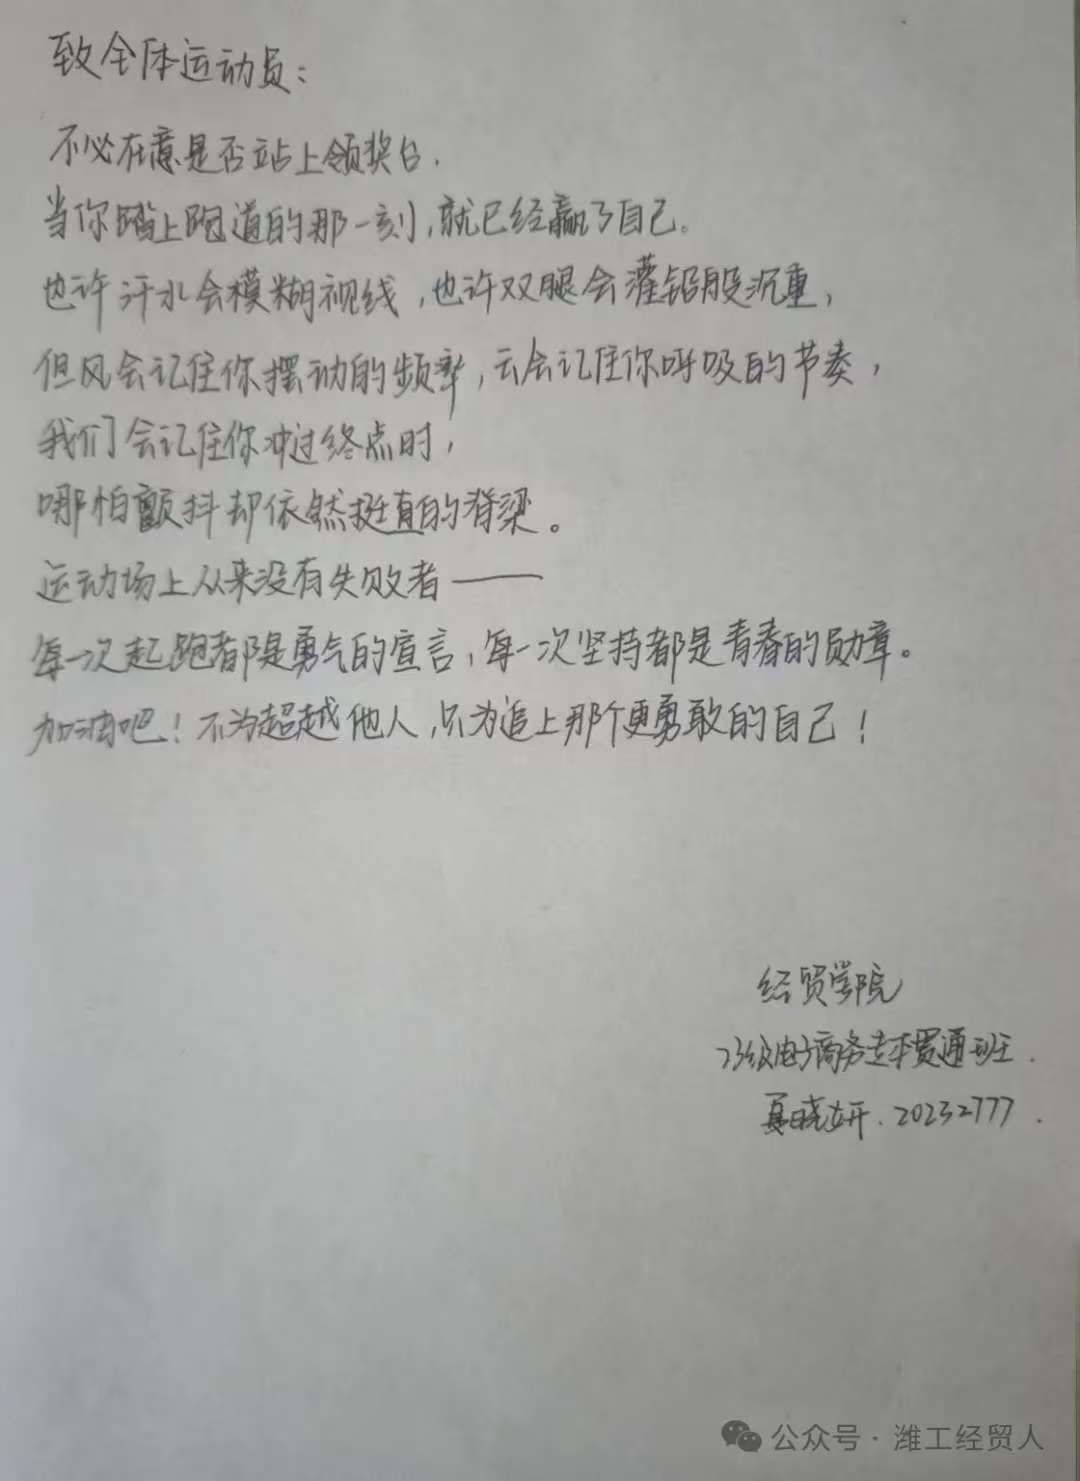 致全体运动员：
不必在意是否站上领奖台．
当你踏上跑道的那一刻，就已经赢了自己。
也许汗水会模糊视线，也许双腿会灌铅般沉重，
但风会记住你摆动的频率，云会记住你呼吸的节奏，
我们会记住你冲过终点时，
哪怕颤抖却依然挺直的脊梁。
运动场上从来没有失败者——
每一次起跑都是勇气的宣言，每一次坚持都是青春的勋章。
加油吧！不为超越他人，只为追上那个更勇敢的自己！
经贸学院
23级电子商务专本贯通班．
夏晓妍．20232777．
公众号·潍工经贸人